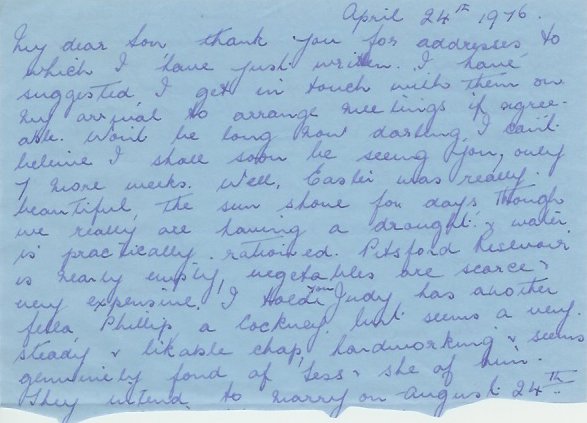 April 24th 1976.
My dear Son thank you for addresses to
which I have just written. I have
suggested I get in touch with them on
my arrival to arrange meetings if agree-
able. Won't be long now darling, I can't
believe I shall soon be seeing you, only
7 more weeks. Well, Easter was really
beautiful, the sun shone for days though
we really are having a drought & water
is practically rationed. Pitsford Reservoir
is nearly empty, vegetables are scarce &
very expensive. I told you Judy has another
fella, Phillip, a Cockney, but seems a very
steady & likable chap, hardworking & seems
genuinely fond of Jess & she of him.
They intend to marry on August 24th